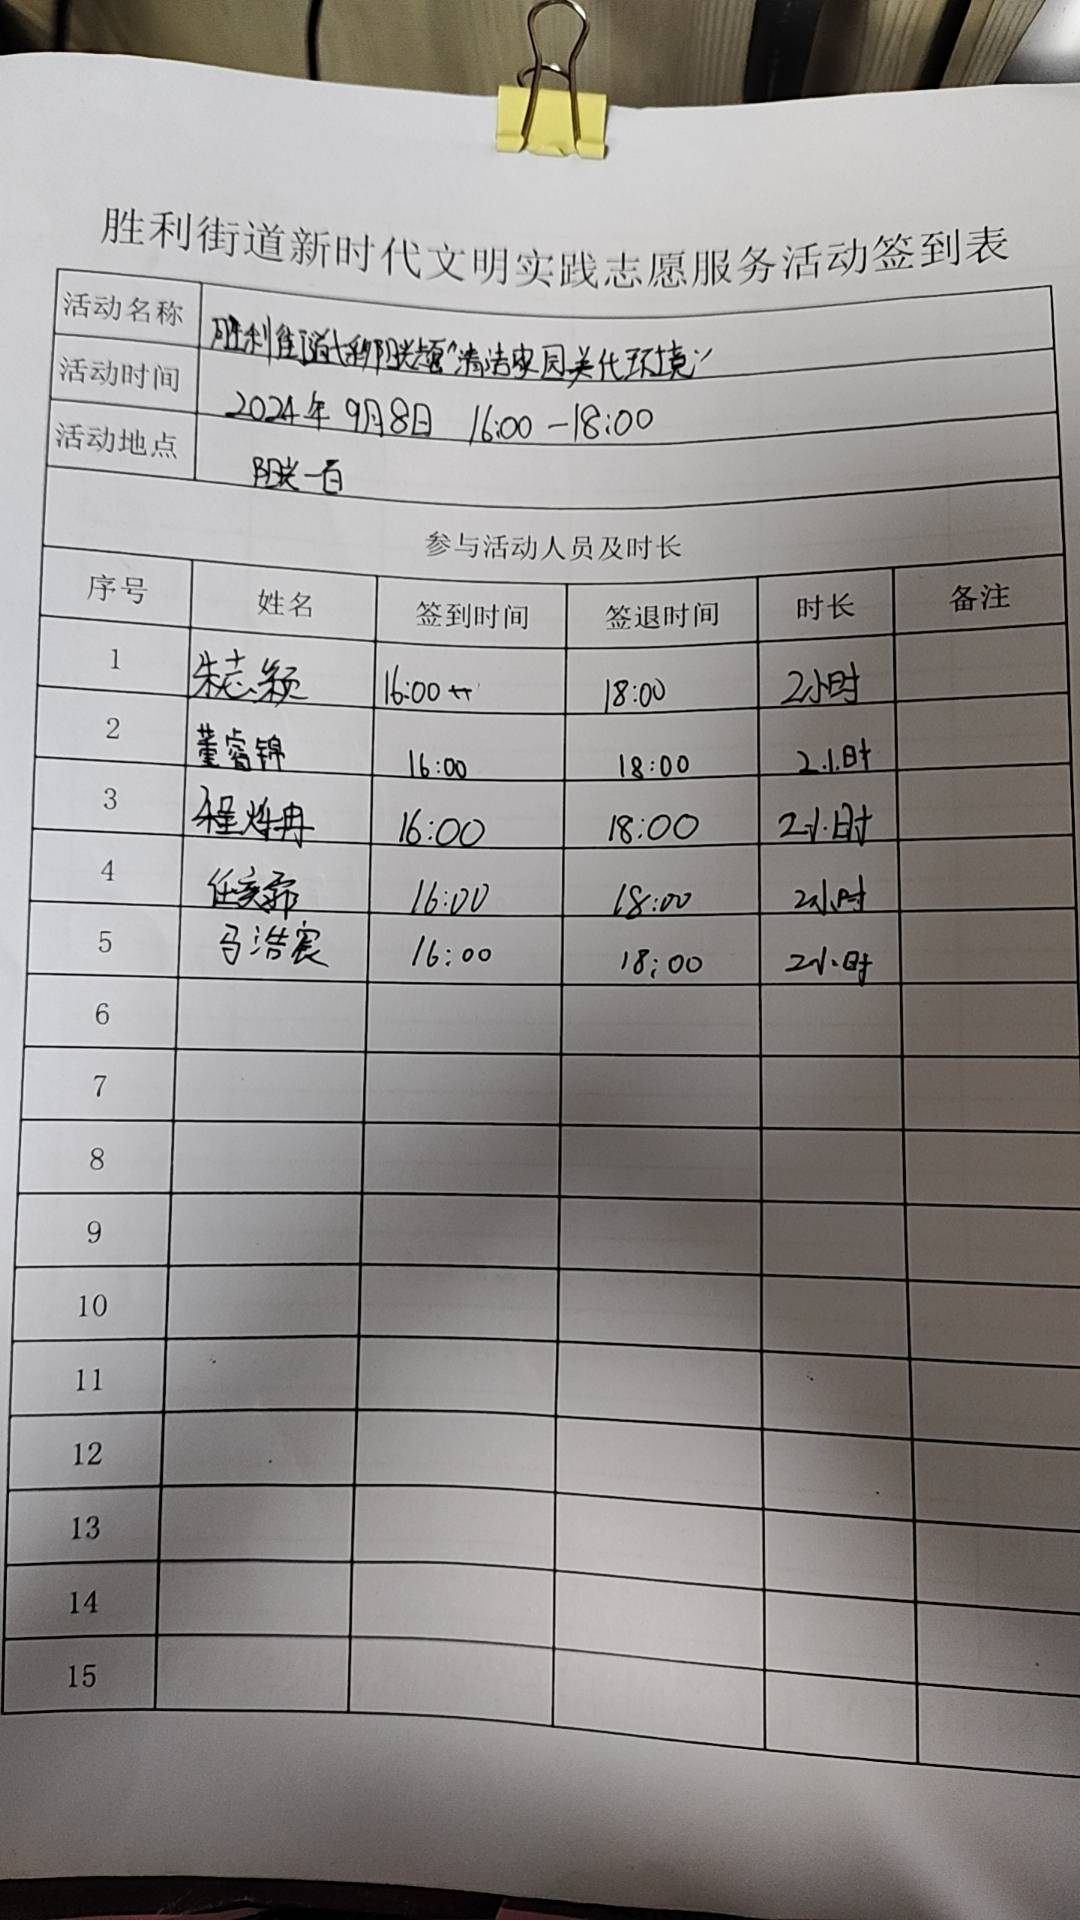 胜利街道新时代文明实践志愿服务活动签到表
活动名称 胜利街道 "清洁家园美化环境"
活动时间 2024年9月8日 16:00-18:00
活动地点 阳光一百
参与活动人员及时长
序号 姓名 签到时间 签退时间 时长 备注
1 朱志颖 16:00 18:00 2小时
2 董睿锦 16:00 18:00 2小时
3 程烨冉 16:00 18:00 2小时
4 任 16:00 18:00 2小时
5 马浩宸 16:00 18:00 2小时
6
7
8
9
10
11
12
13
14
15